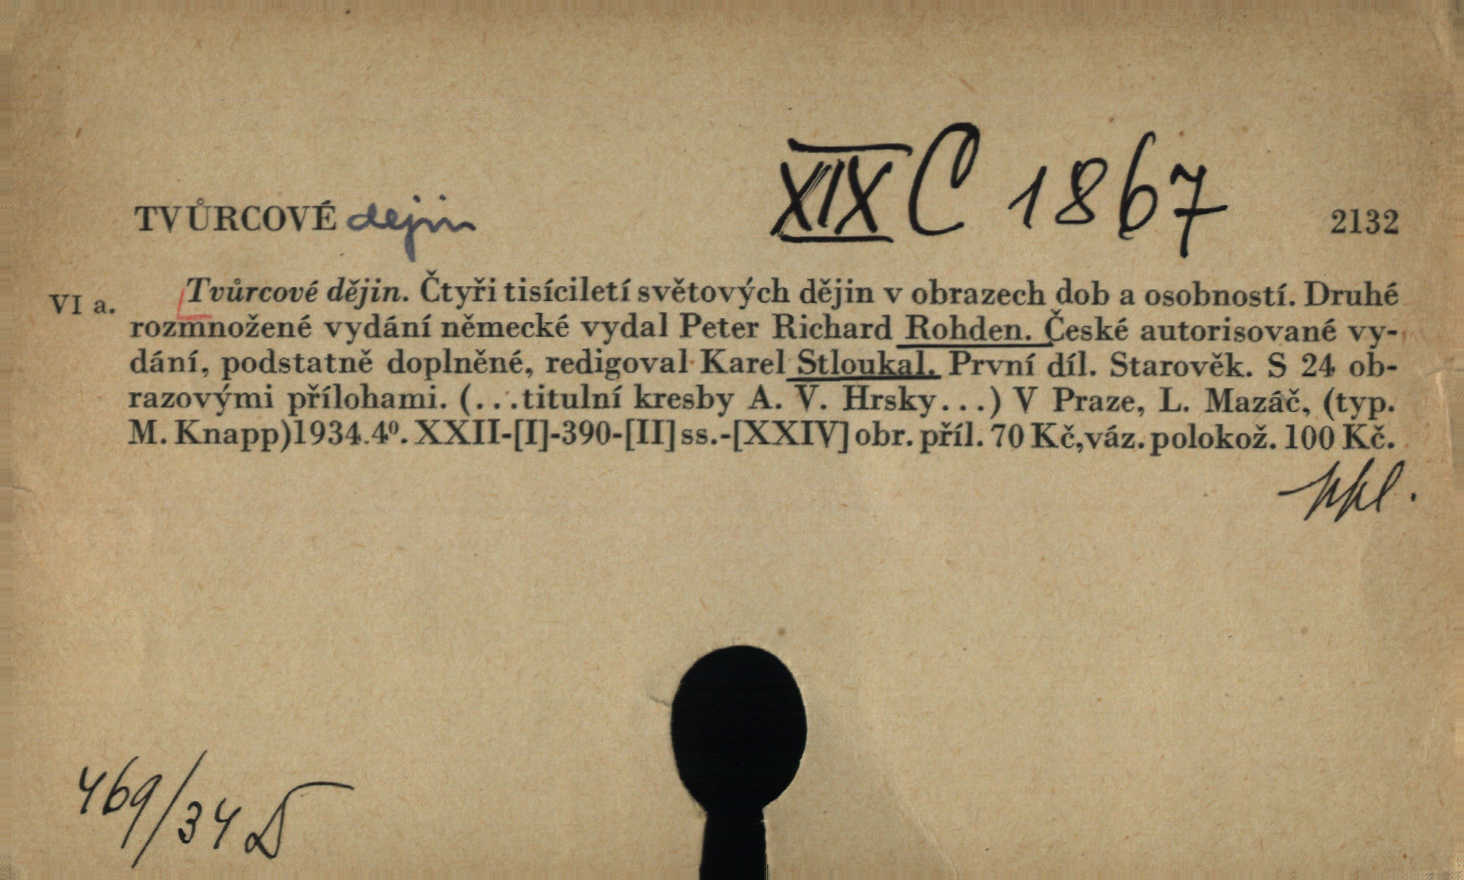 XIX C 1867
TVŮRCOVÉ dejin 2132
VI a. Tvůrcové dějin. Čtyři tisíciletí světových dějin v obrazech dob a osobností. Druhé
rozmnožené vydání německé vydal Peter Richard Rohden. České autorisované vy-
dání, podstatně doplněné, redigoval Karel Stloukal. První díl. Starověk. S 24 ob-
razovými přílohami. (...titulní kresby A. V. Hrsky...) V Praze, L. Mazáč, (typ.
M. Knapp) 1934. 4⁰. XXII-[I]-390-[II] ss.-[XXIV] obr. příl. 70 Kč, váz. polokož. 100 Kč.
ppl.
469/34 D